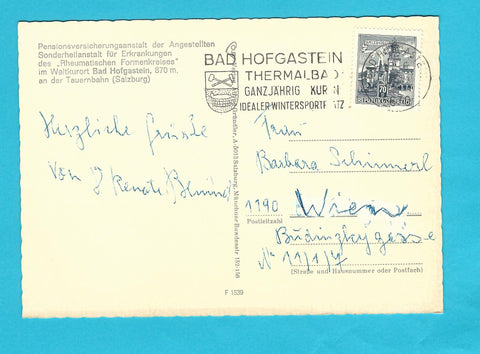 Pensionsversicherungsanstalt der Angestellten
Sonderheilanstalt für Erkrankungen
des „Rheumatischen Formenkreises"
im Weltkurort Bad Hofgastein, 870 m,
an der Tauernbahn (Salzburg)
Herzliche Grüße
von
Renate
BAD HOFGASTEIN
THERMALBAD
GANZJÄHRIG KUR
IDEALER WINTERSPORTPLATZ
70
Frau
Barbara Schimmerl
1190 Wien
Postleitzahl
Budinskygasse
N° 11/1/7
(Straße und Hausnummer oder Postfach)
A-5013 Salzburg, Münchner Bundesstr. 152-156
F 1539